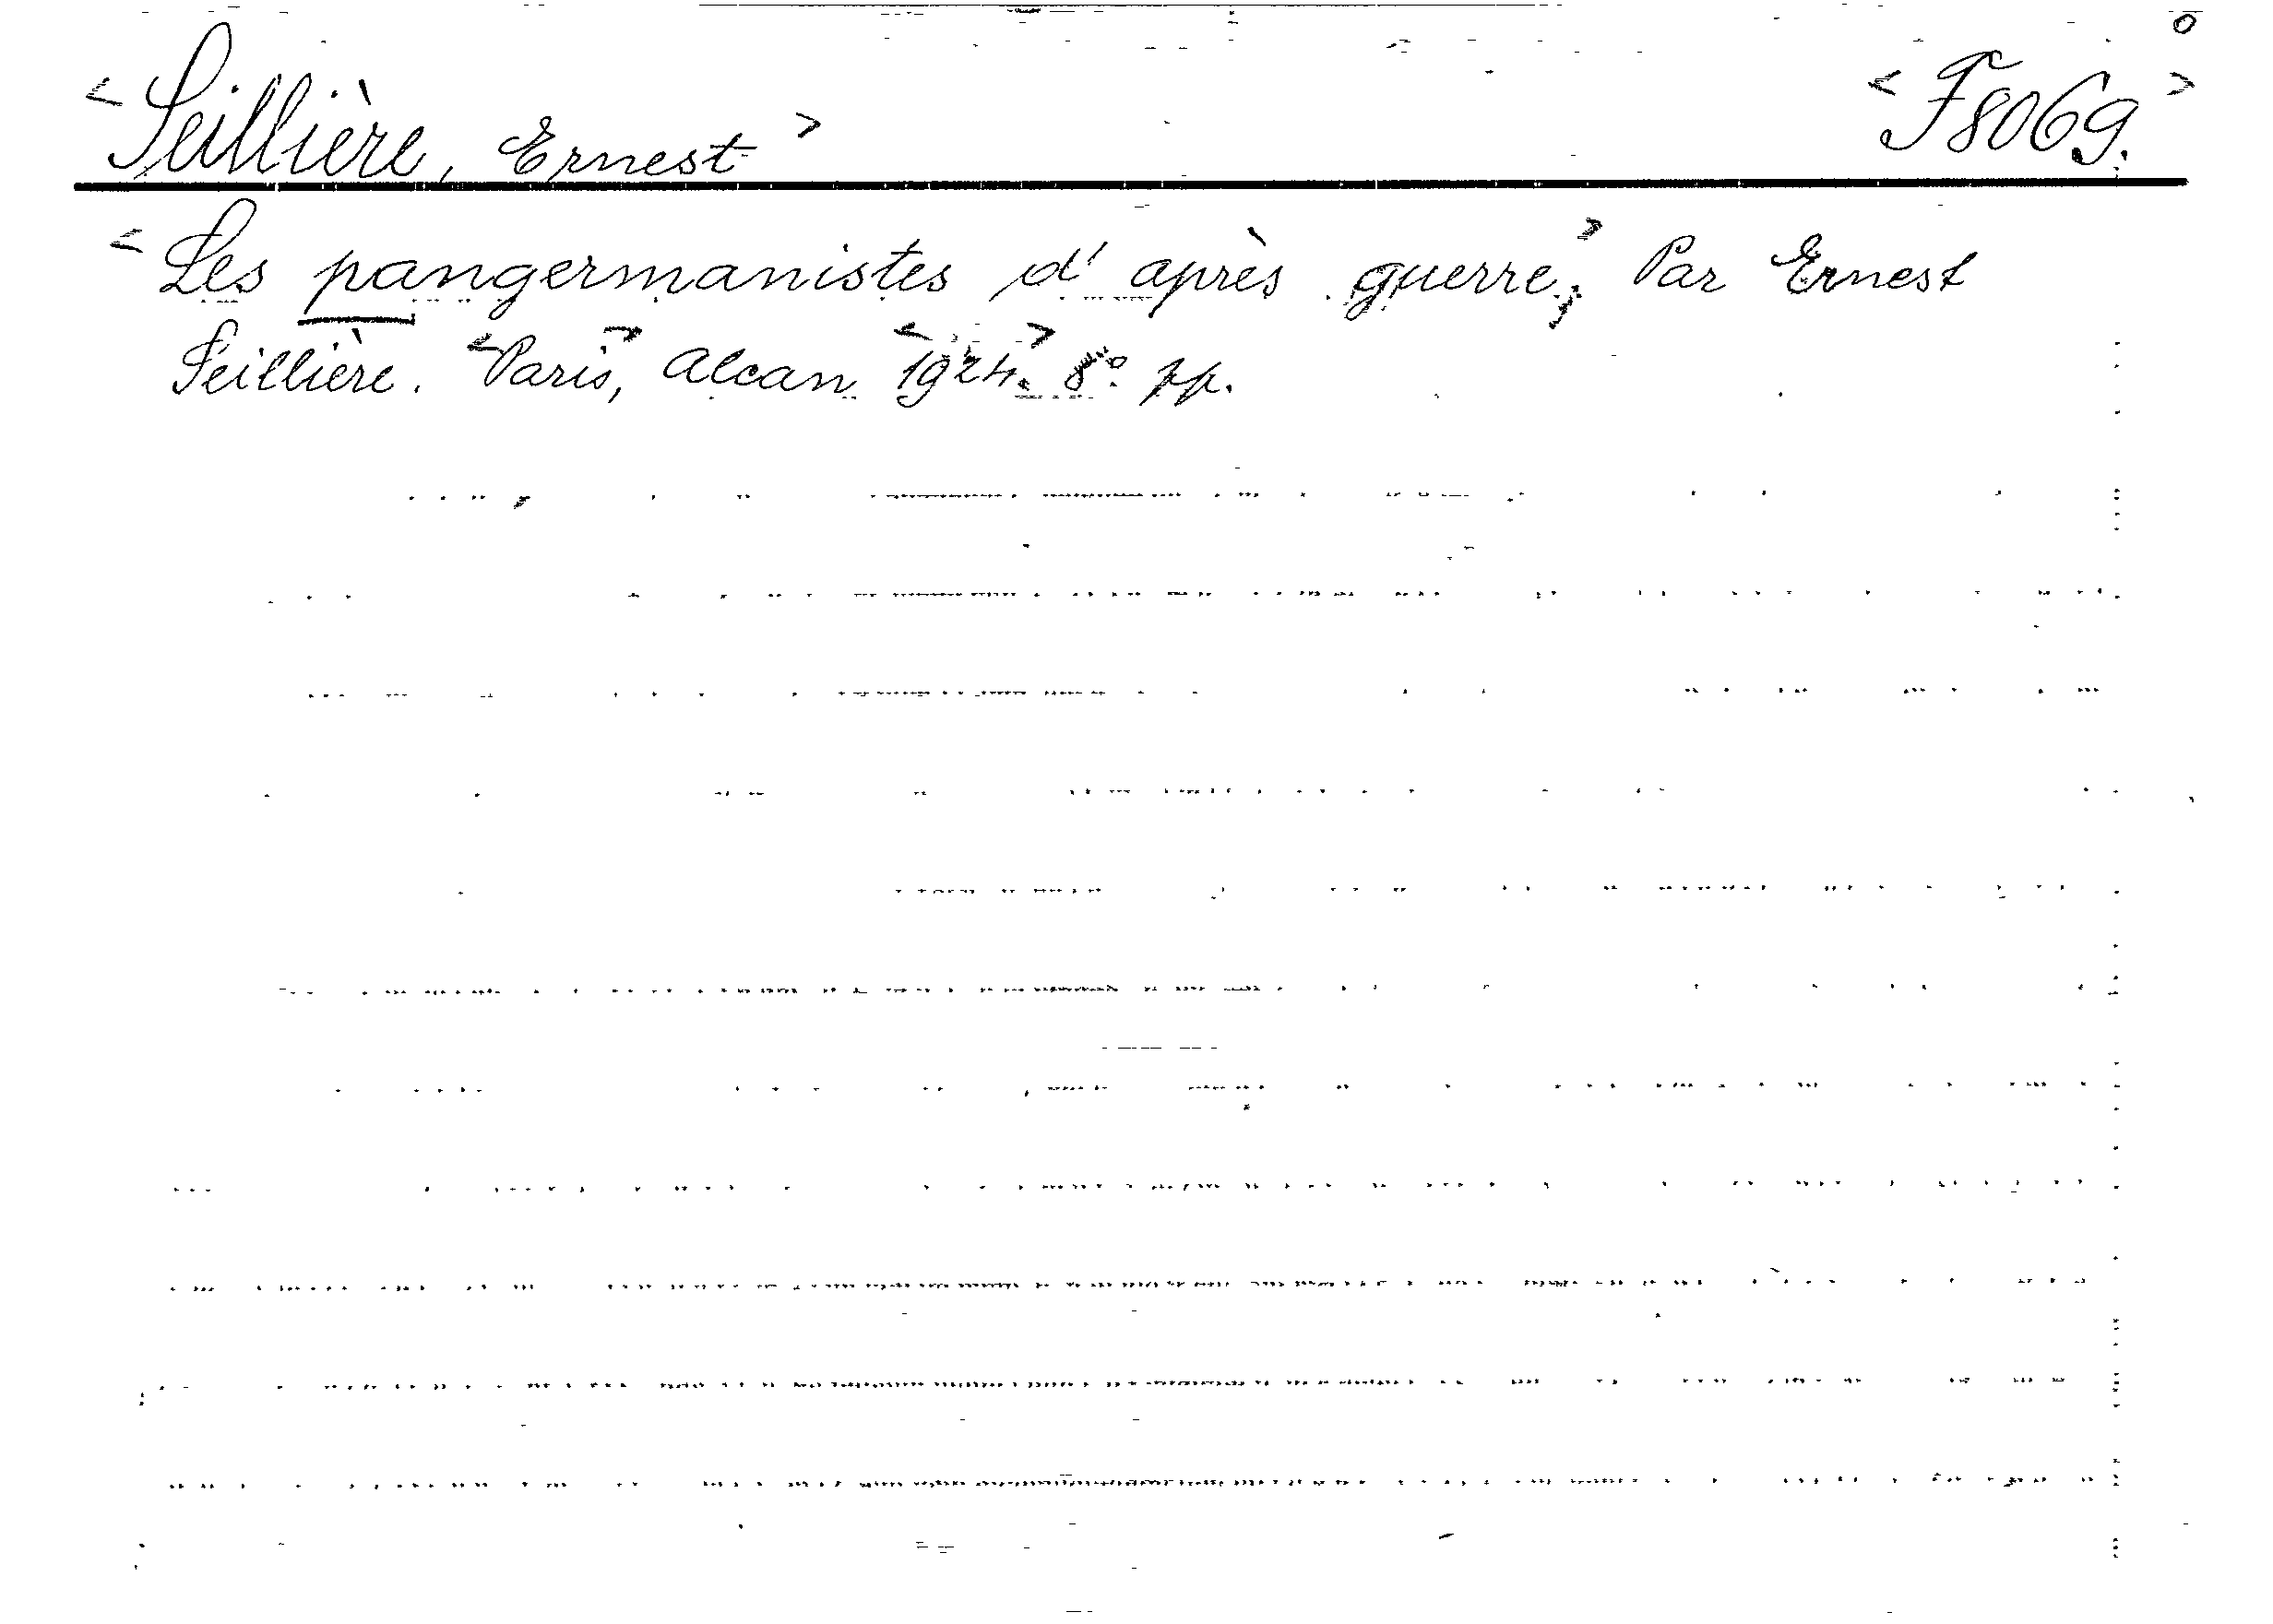 <Seillière, Ernest> <F8069.>
<Les pangermanistes d'après guerre.> Par Ernest
Seillière. <Paris>, Alcan <1924.> 8° pp.